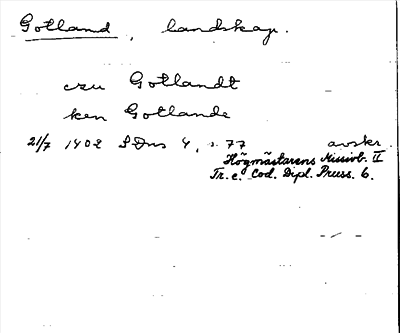 Gotland, landskap.
czu Gotlandt
ken Gotlande
21/7 1402 SDns 4, s. 77 avskr.
Högmästarens Missivb. II
Tr. e. Cod. Dipl. Pruss. 6.